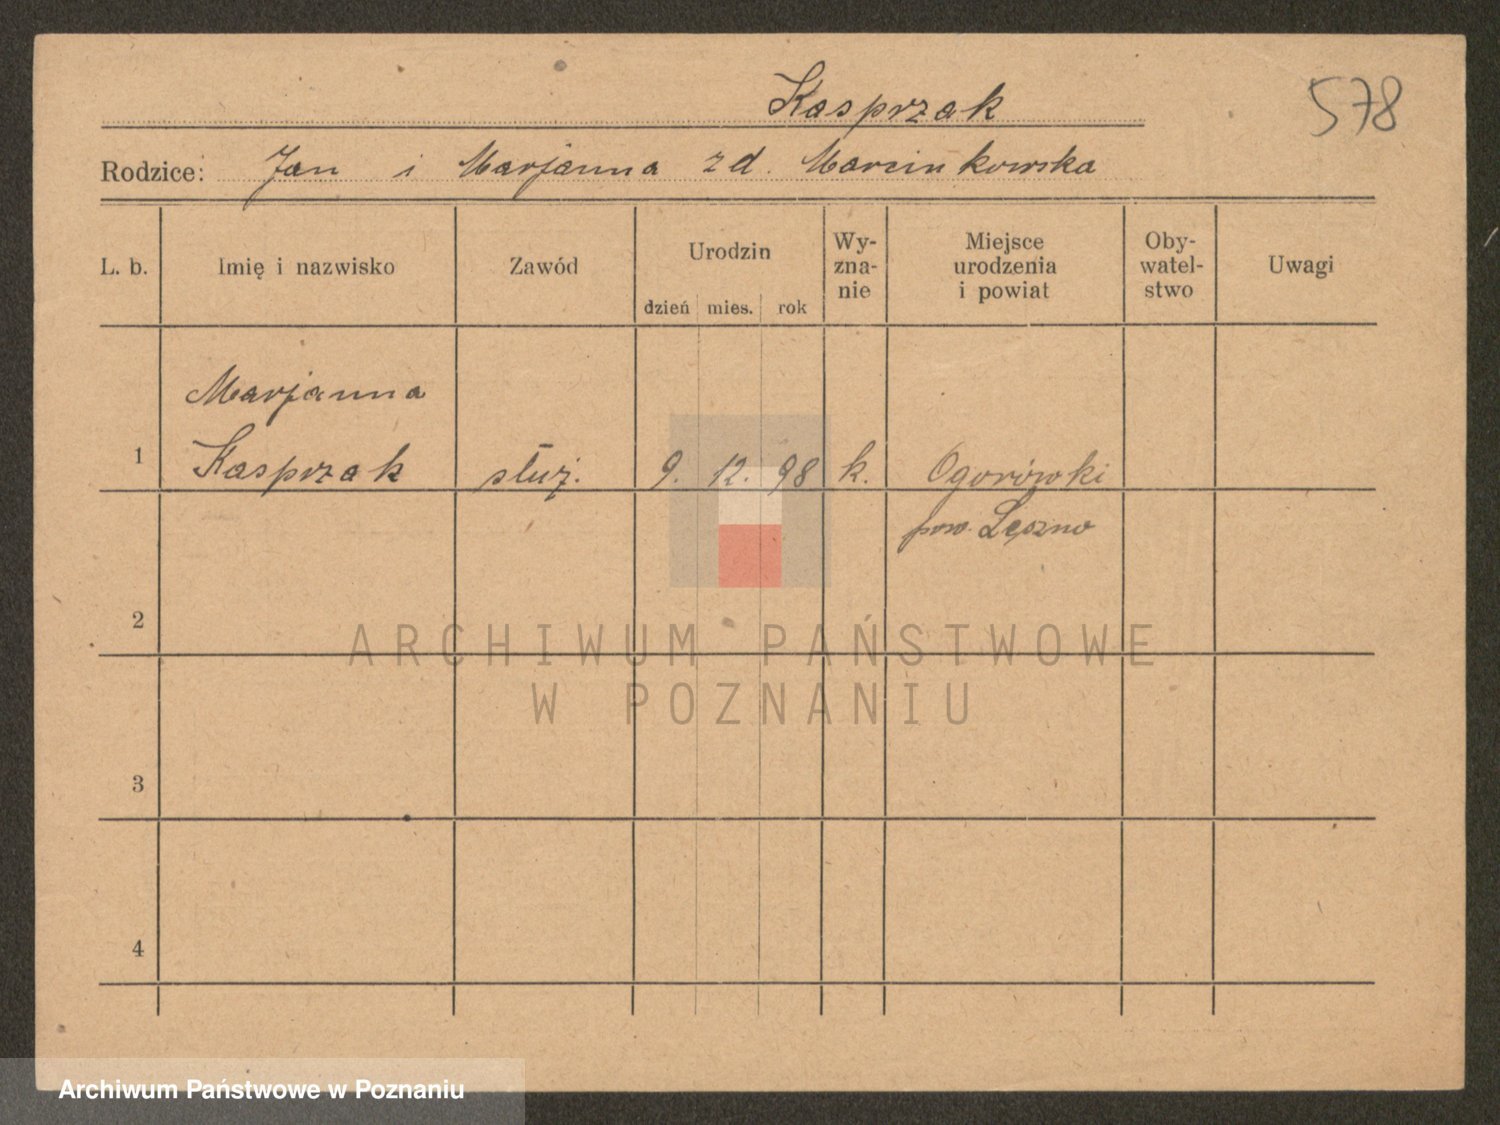 Kasprzak
578
Rodzice: Jan i Marjanna zd. Marcinkowska
L. b. Imię i nazwisko Zawód Urodzin dzień mies. rok Wy-zna-nie Miejsce urodzenia i powiat Oby-watel-stwo Uwagi
Marjanna
1 Kasprzak służ. 9. 12. 98 k. Ogorówki
pow. Lęszno
2
ARCHIWUM PAŃSTWOWE
W POZNANIU
3
4
Archiwum Państwowe w Poznaniu